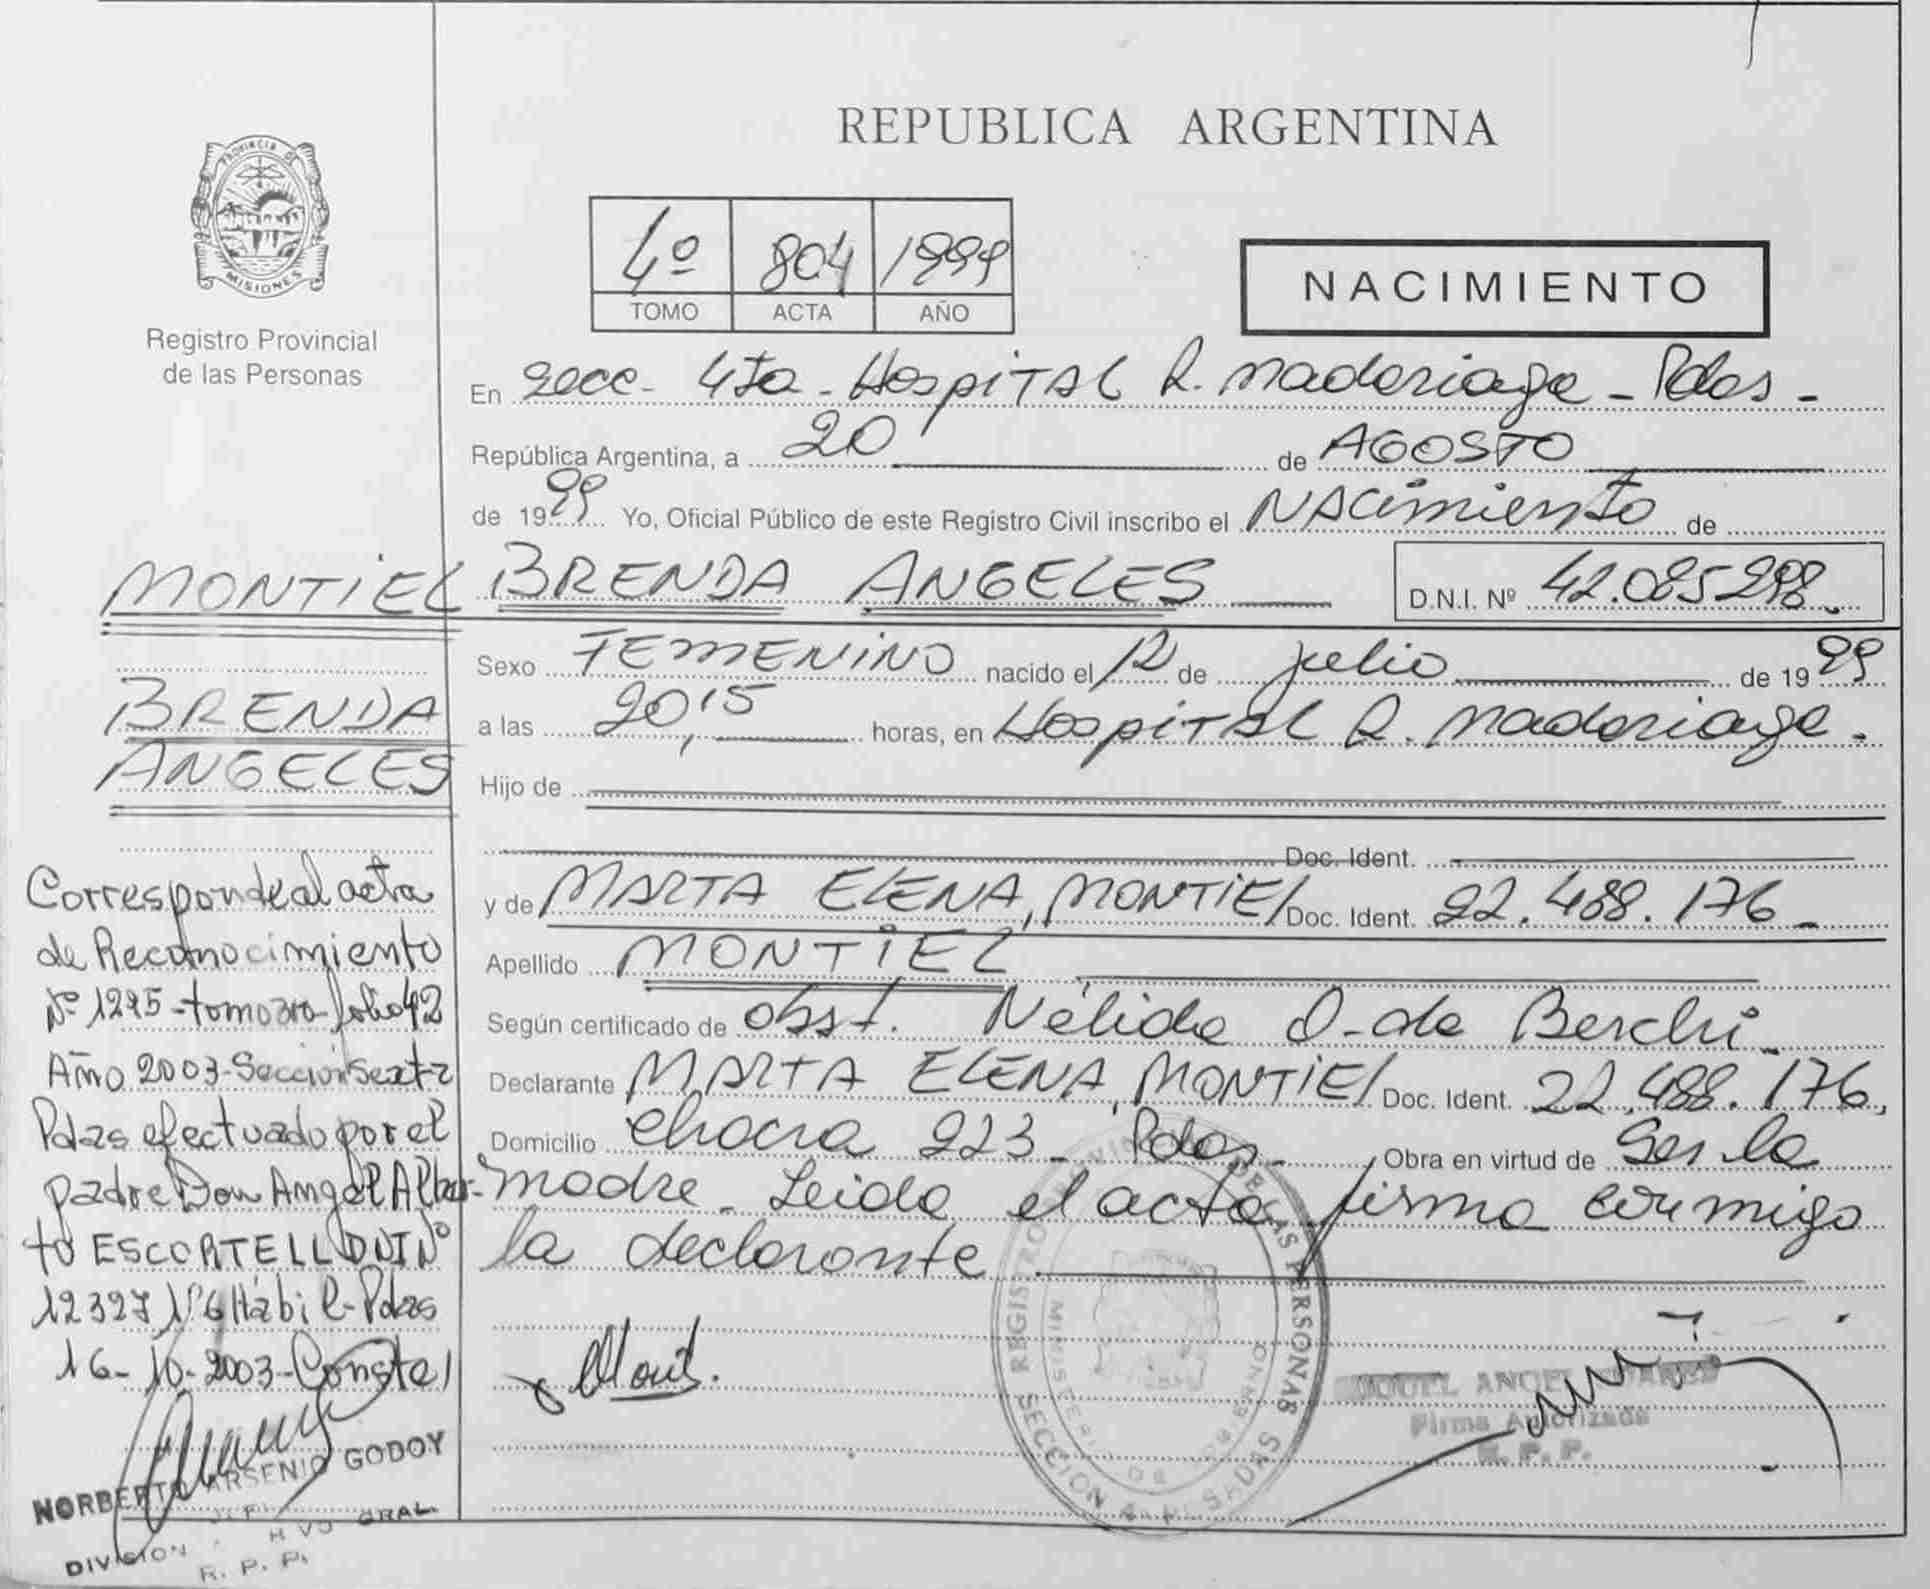 REPUBLICA ARGENTINA
PROVINCIA DE
MISIONES
Registro Provincial
de las Personas
4º 804 1999
TOMO ACTA AÑO
NACIMIENTO
En Secc- 4ta - Hospital R. Madariaga - Pdas -
República Argentina, a 20 de AGOSTO
de 1999 Yo, Oficial Público de este Registro Civil inscribo el NAcimiento de
MONTIEL BRENDA ANGELES D.N.I. Nº 42.025298.
Sexo FEMENINO nacido el 12 de julio de 1999
BRENDA
ANGELES
a las 20,15 horas, en Hospital R. Madariaga.
Hijo de
Doc. Ident.
y de MARTA ELENA, MONTIEL Doc. Ident. 22.488.176
Apellido MONTIEL
Según certificado de obst. Nélida O. de Berchi
Declarante MARTA ELENA, MONTIEL Doc. Ident. 22.488.176,
Domicilio Chacra 223 - Pdas - Obra en virtud de Ser la
madre. Leida el acta firma conmigo
la declarante
Corresponde al acta
de Reconocimiento
Nº 1295 - tomo 3ro - folio 42
Año 2003 - Sección Sexta
Pdas efectuado por el
padre Don Angel Alber-
to ESCORTELL DNI Nº
12327176 Hábil - Pdas
16-10-2003 - Conste
NORBERTO ARSENIO GODOY
DIVISION GRAL
R. P. P.
REGISTRO PROVINCIAL DE LAS PERSONAS
MINISTERIO DE GOBIERNO
SECCION 4 POSADAS
MIGUEL ANGEL
Firma Autorizada
R. P. P.